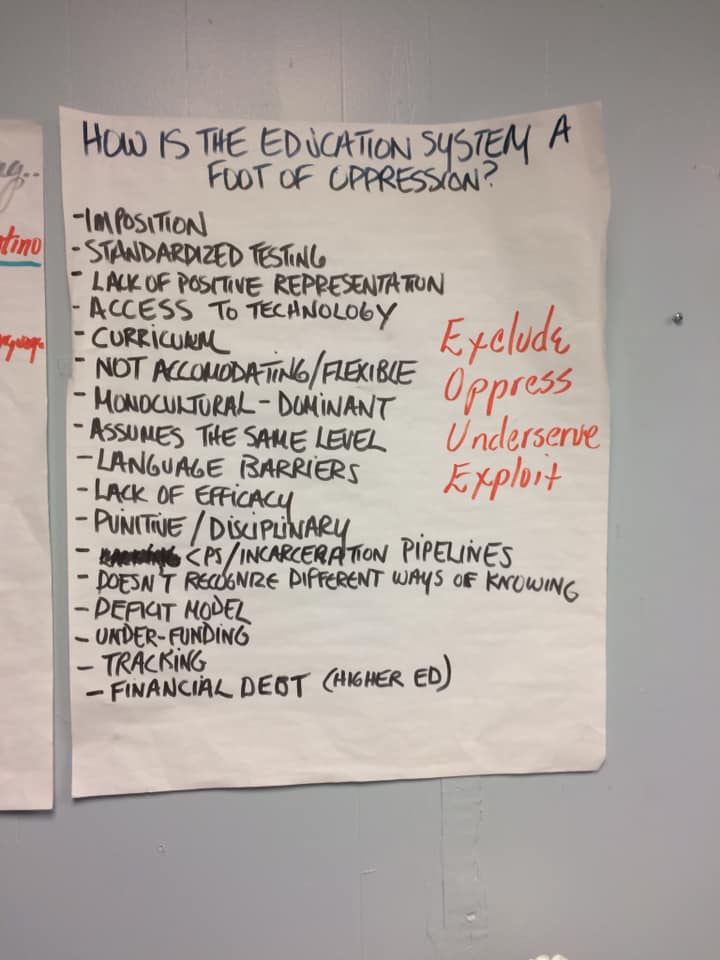 HOW IS THE EDUCATION SYSTEM A
FOOT OF OPPRESSION?
-IMPOSITION
-STANDARDIZED TESTING
- LACK OF POSITIVE REPRESENTATION
- ACCESS TO TECHNOLOGY
- CURRICULUM
- NOT ACCOMODATING/FLEXIBLE
- MONOCULTURAL-DOMINANT
- ASSUMES THE SAME LEVEL
- LANGUAGE BARRIERS
- LACK OF EFFICACY
- PUNITIVE/DISCIPLINARY
- CPS/INCARCERATION PIPELINES
- DOESN'T RECOGNIZE DIFFERENT WAYS OF KNOWING
- DEFICIT MODEL
- UNDER-FUNDING
- TRACKING
- FINANCIAL DEBT (HIGHER ED)
Exclude
Oppress
Underserve
Exploit